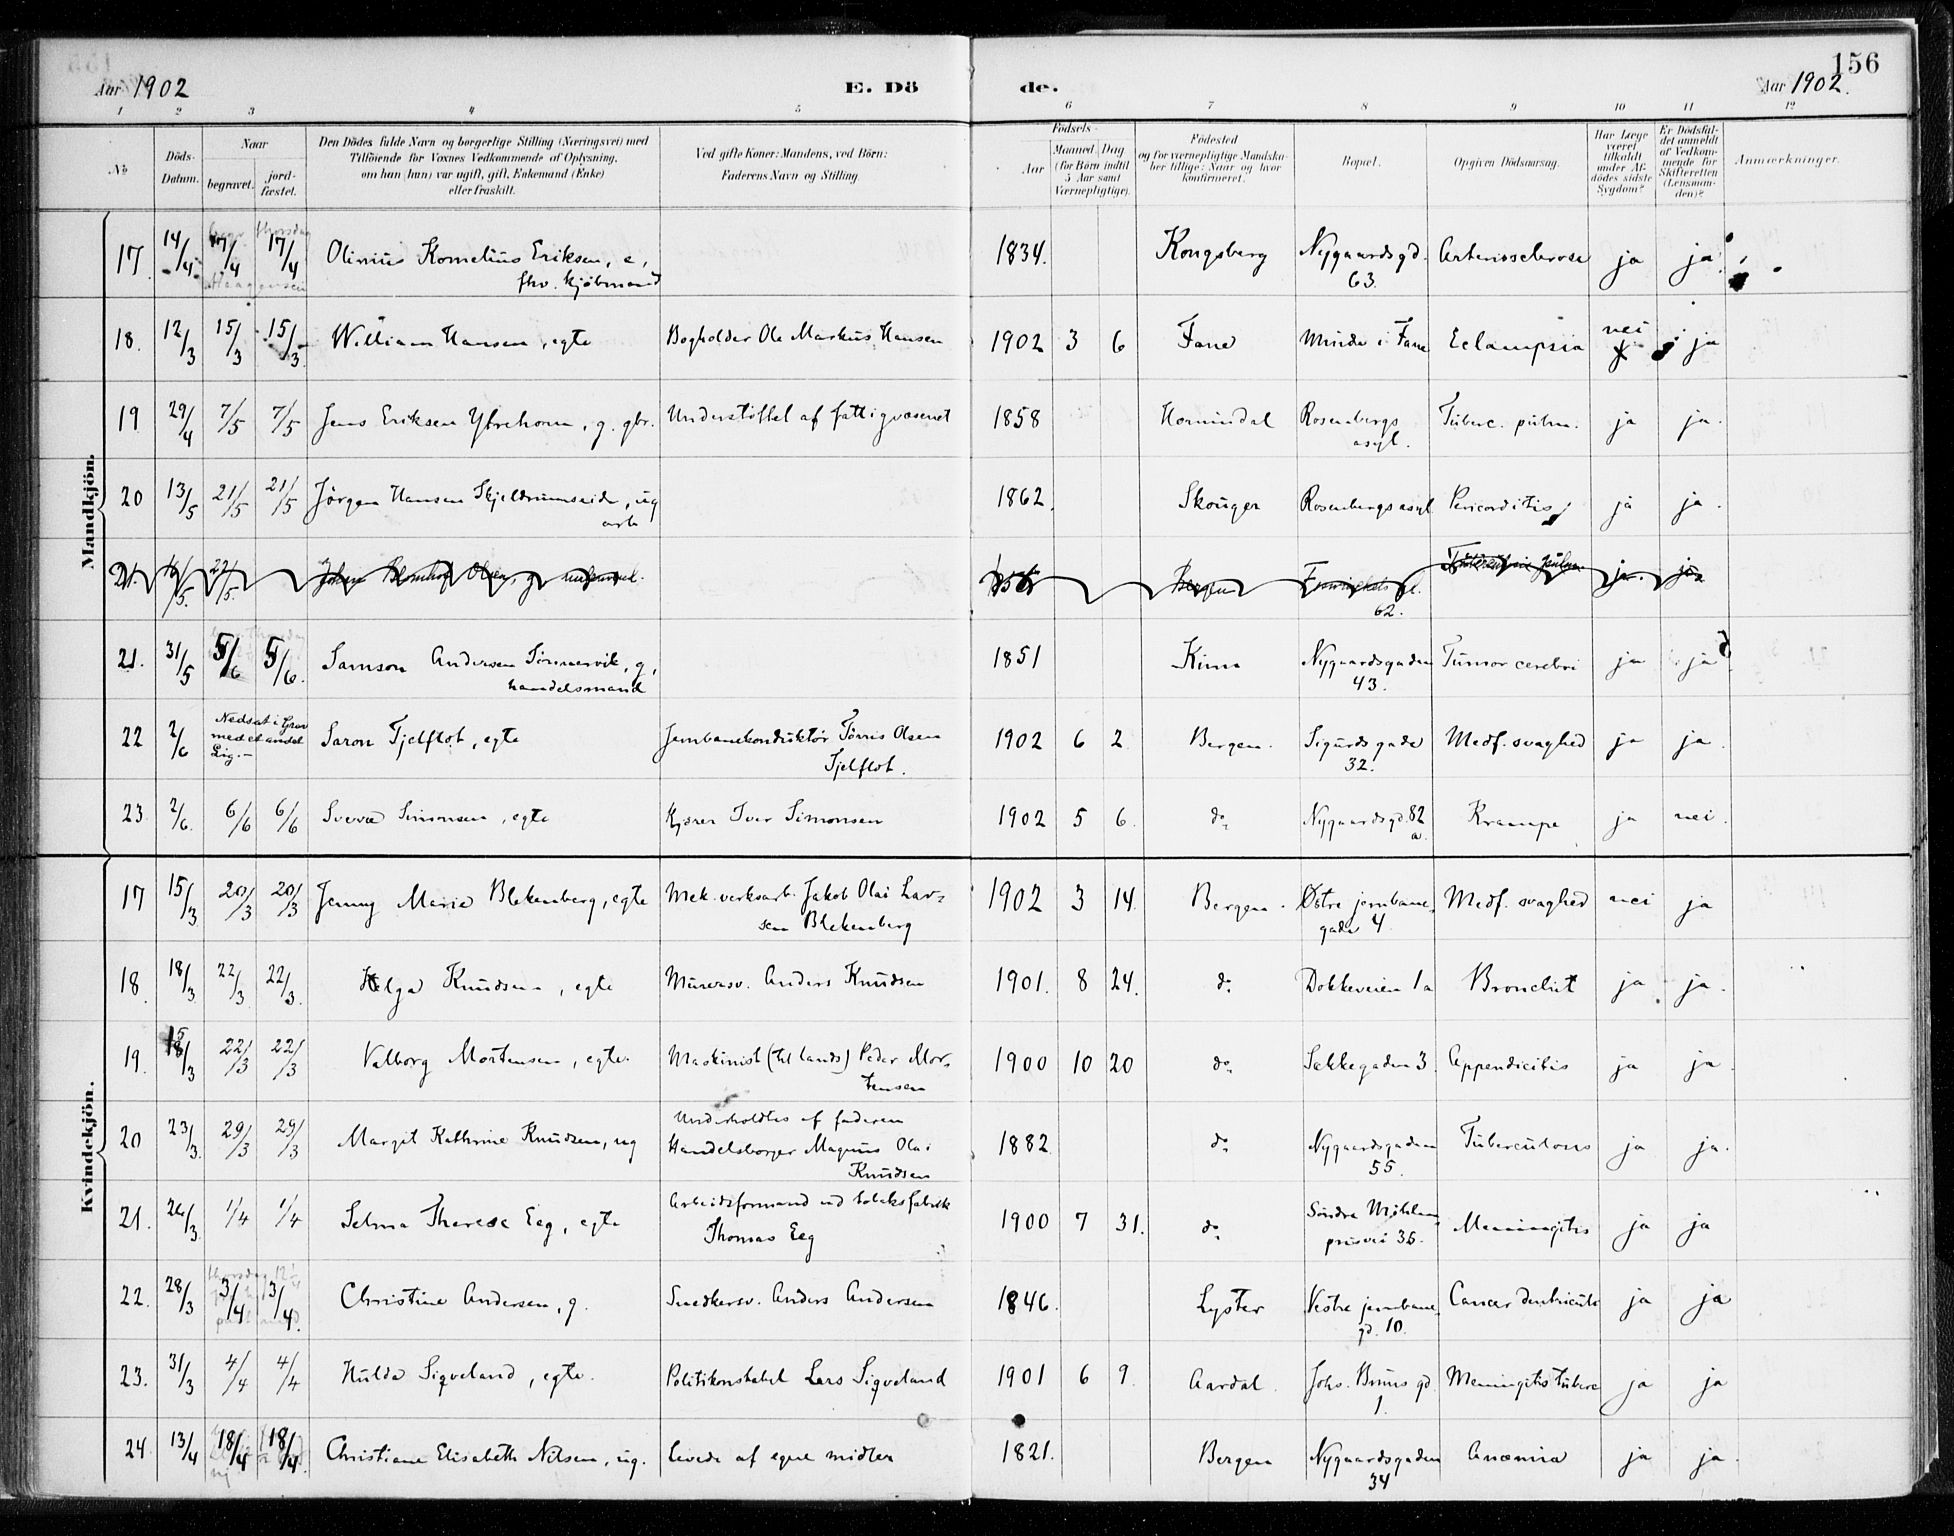 156
Aar 1902 E. Dö de. Aar 1902.
1 2 3 4 5 6 7 8 9 10 11 12
No Döds-Datum. Naar begravet. jord-fæstet. Den Dödes fulde Navn og borgerlige Stilling (Næringsvei) med Tilföiende for Voxnes Vedkommende af Oplysning, om han (hun) var ugift, gift, Enkemand (Enke) eller fraskilt. Ved gifte Koner: Mandens, ved Börn: Faderens Navn og Stilling. Födsels- Aar Maaned Dag (for Börn indtil 5 Aar samt Værnepligtige). Födested og for værnepligtige Mandskaber tillige: Naar og hvor konfirmeret. Bopæl. Opgiven Dödsaarsag. Har Læge været tilkaldt under Afdödes sidste Sygdom? Er Dödsfaldet anmeldt af Vedkommende for Skifteretten (Lensmanden)? Anmærkninger.
Mandkjön.
17. 14/4 17/4 17/4 Olinius Kornelius Eriksen, e, 1834. Kongsberg Nygaardsgd. Arteriosclerose ja ja
fhv. kjöbmand 63.
18. 12/3 15/3 15/3 William Hansen, egte Bogholder Ole Markus Hansen 1902 3 6 Fane Minde i Fane Eclampsia nei ja
19 29/4 7/5 7/5 Jens Eriksen Ytrehorn, g. gbr. Understöttet af fattigvæsenet 1858 Hornindal Rosenbergs Tuberc. pulm. ja ja.
asyl.
20 13/5 21/5 21/5 Jörgen Hansen Skjeldrumseide, ug 1862. Skouger Rosenbergsasyl Pericarditis ja ja.
arb
21. 16/5. 22/5. Johan Olsen, g. Bergen ja. ja
62.
21. 31/5 5/6 5/6. Samson Andersen Tönnesvik, g, 1851 Kinn Nygaardsgaden Tumor cerebri ja ja
handelsmand 43.
22 2/6 Nedsat i Grav med et andet Lig.- Saron Tjelflot, egte Jernbanekonduktör Törris Olsen 1902 6 2 Bergen. Sigurdsgade Medf. svaghed ja ja.
Tjelflot. 32.
23 2/6. 6/6 6/6 Svevæ Simonsen, egte Kjörer Iver Simonsen 1902 5 6. do Nygaardsgd. 82 a. Krampe ja nei.
Kvindekjön.
17 15/3 20/3 20/3 Jenny Marie Blekenberg, egte Mek. verksarb. Jakob Olai Lar- 1902 3 14. Bergen. Østre jernbane- Medf. svaghed nei ja
sen Blekenberg gade 4
18. 18/3 22/3 22/3. Helga Knudsen, egte Murersv. Anders Knudsen 1901. 8 24. do Dokkeveien 1a Bronchit ja ja.
19. 15/3 22/3 22/3 Valborg Mortensen, egte. Maskinist (til lands) Peder Mor- 1900 10 20 do Sekkegaden 3. Appendicitis ja ja.
tensen
20 23/3. 29/3 29/3 Margit Kathrine Knudsen, ug Underholdtes af faderen 1882. do Nygaardsgaden Tuberculous ja ja.
Handelsborger Magnus Olai 55.
Knudsen
21. 26/3. 1/4 1/4 Selma Therese Eeg, egte Arbeidsformand ved tobaksfabrik 1900 7 31. do Söndre Möhlen- Meningitis ja ja
Thomas Eeg prisvei 36.
22. 28/3 3/4 3/4. Christine Andersen, g. Snedkersv. Anders Andersen 1846. Lyster Vestre jernbane- Cancer ventriculi ja ja
gd. 10.
23. 31/3 4/4 4/4 Hulda Sigveland, egte. Politikonstabel Lars Sigveland 1901 6 9. Aardal. Johs. Bruns gd. Meningitis tuberc ja ja
1.
24. 13/4 18/4 18/4. Christiane Elisabeth Nilsen, ug. Levede af egne midler 1821. Bergen Nygaardsgaden Anæmia ja ja.
34